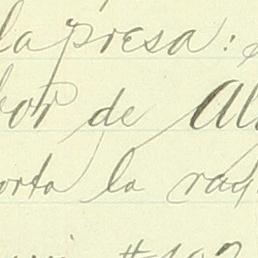 la presa:
bor de Al
orta la ray